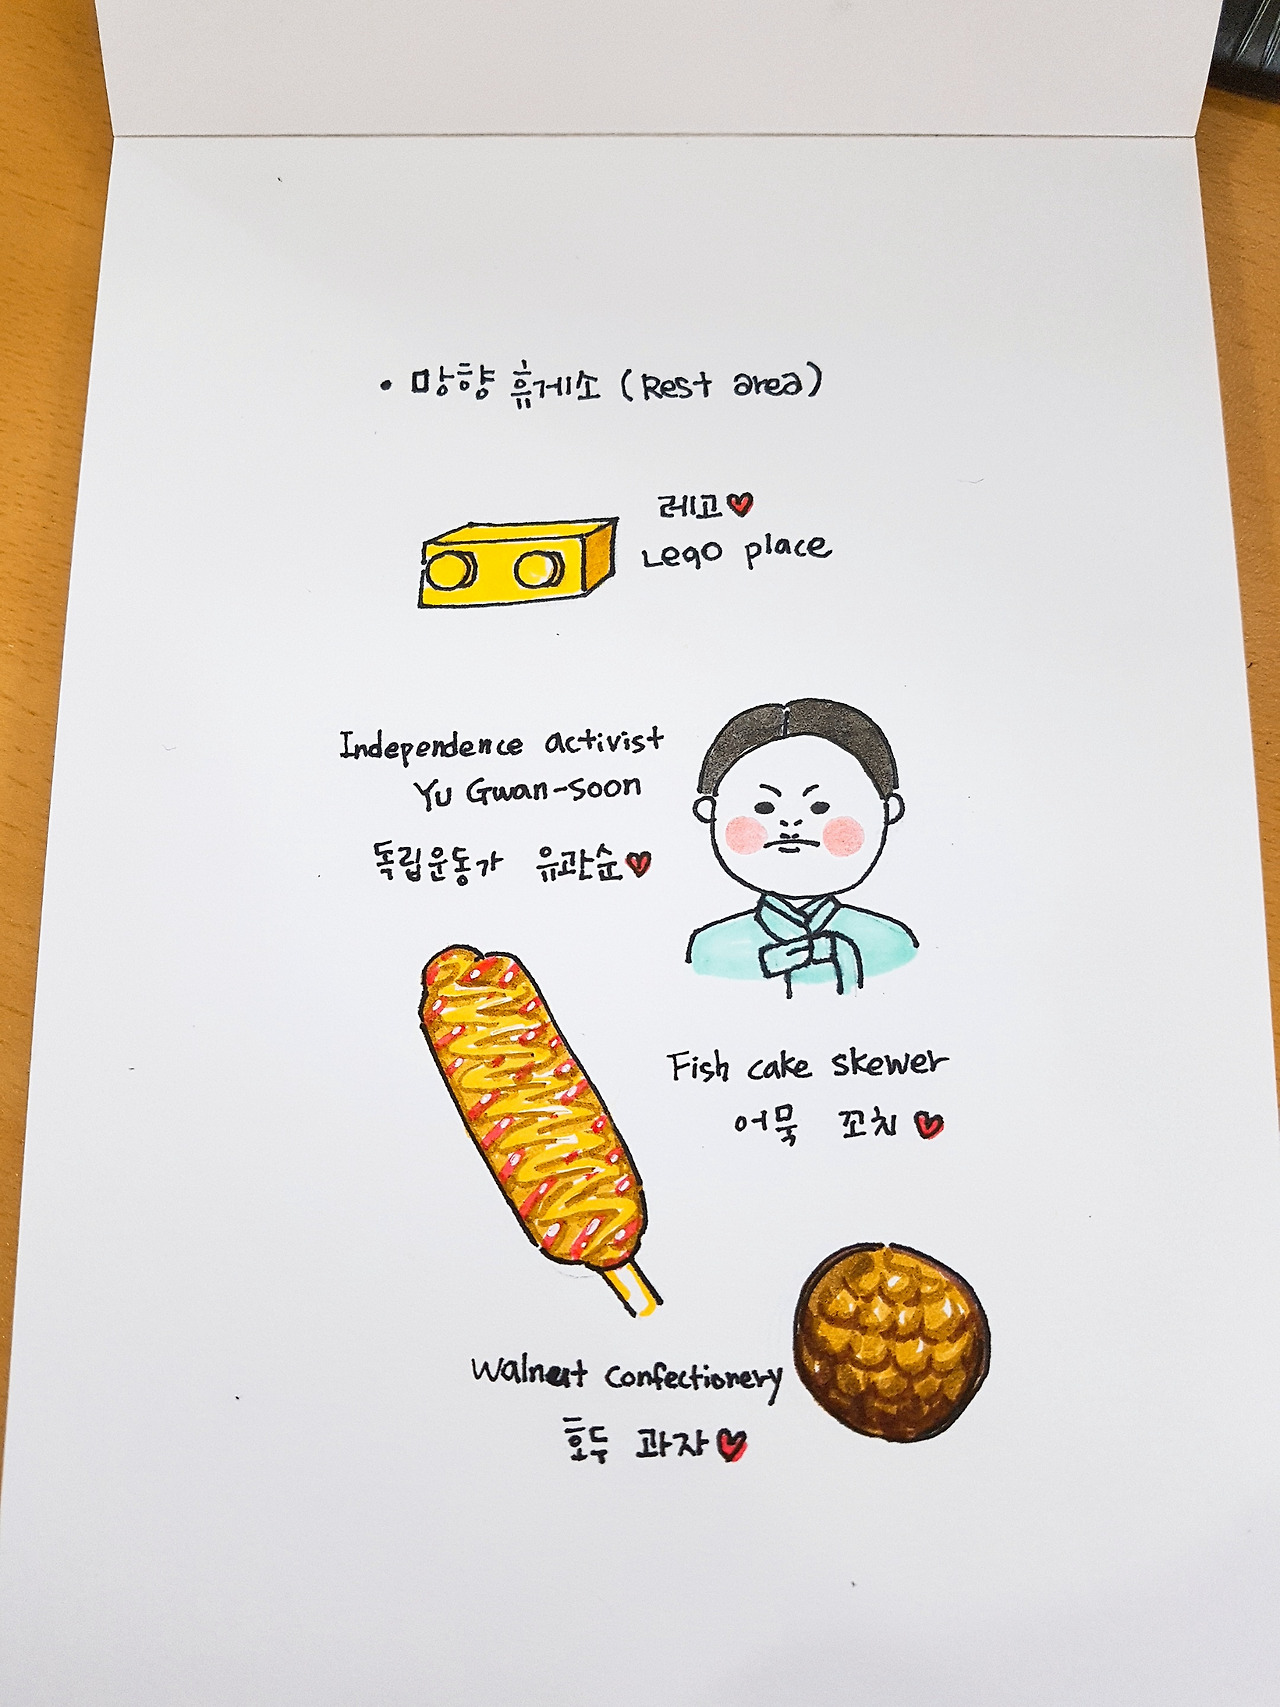 • 망향 휴게소 (Rest area)
레고♥
Lego place
Independence activist
Yu Gwan-soon
독립운동가 유관순♥
Fish cake skewer
어묵 꼬치♥
Walnut confectionery
호두 과자♥